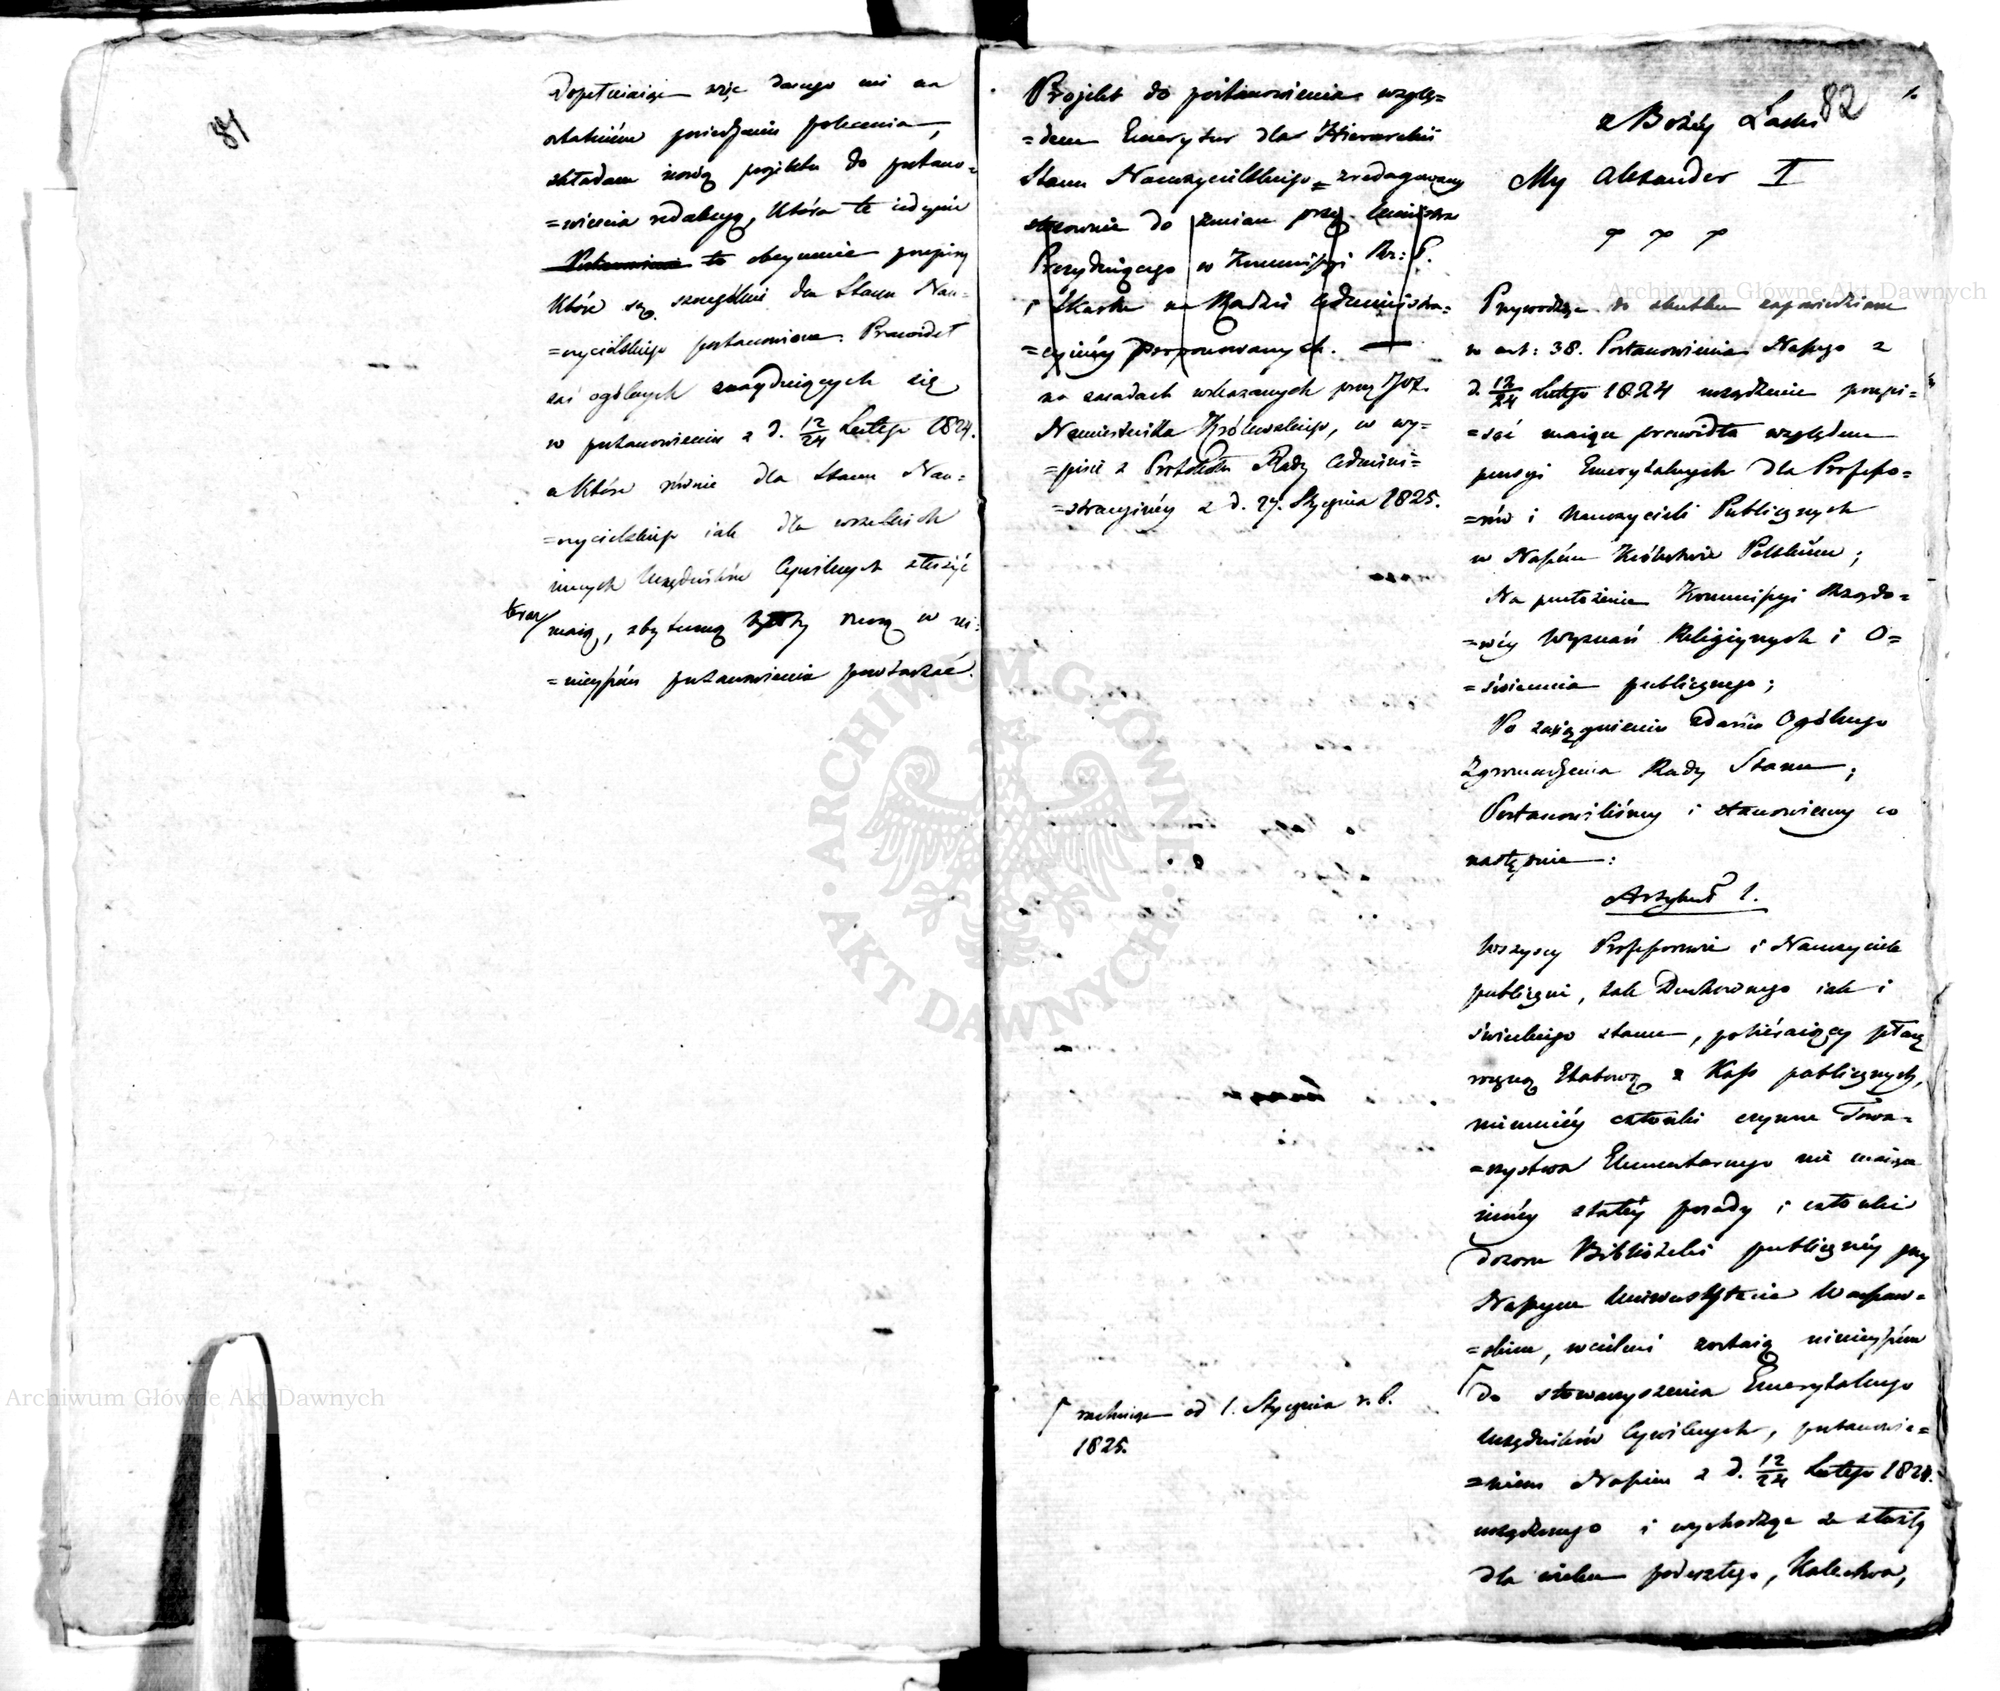 81
Dopełniaiąc więc danego mi na
ostatniém posiedzeniu polecenia,
składam nową projektu do postano=
=wienia redakcyą, która te iedynie
Postanowienie to obeymuie przepisy
które są szczególnie dla Stanu Nau=
=czycielskiego postanowione. Prawideł
zaś ogólnych znayduiących się
w postanowieniu z d. 12/24 Lutego 1824.
a które równie dla Stanu Nau=
=czycielskiego iak dla wszelkich
innych Urzędników Cywilnych służyć
teraz/ maią, zbyteczną byłoby rzeczą w ni=
=nieyszém postanowieniu powtarzać.
Projekt do postanowienia wzglę=
=dem Emerytur dla Hierarchii
Stanu Nauczycielskiego = zredagowany
stosownie do zmian przez Ministra
Prezyduiącego w Kommissyi Rz: P.
i Skarbu na Radzie Administra=
=cyinéy proponowanych.
na zasadach wskazanych przez JOX.
Namiestnika Królewskiego, w wy=
=pisie z Protokołu Rady Admini=
=stracyinéy z d. 27. Stycznia 1825.
┌ rachuiąc od 1. Stycznia r. b.
1825.
82
1.
z Bożéy Łaski
My Alexander I
Przywodząc do skutku zapowiedziane
w art: 38. Postanowienia Naszego z
d. 12/24 Lutego 1824 urządzenie przepi=
=sać maiące prawidła względem
pensyi Emerytalnych dla Professo=
=rów i Nauczycieli Publicznych
w Naszém Królestwie Polskiém;
Na przełożenie Kommissyi Rządo=
=wéy Wyznań Religiynych i O=
=świecenia publicznego;
Po zasiągnieniu zdania Ogólnego
Zgromadzenia Rady Stanu;
Postanowiliśmy i stanowiemy co
następuie:
Artykuł 1.
Wszyscy Professorowie i Nauczyciele
publiczni, tak Duchownego iak i
świeckiego stanu, pobieraiący płacę
roczną Etatową z Kass publicznych,
niemniéy członki czynne Towa=
=rzystwa Elementarnego nie maiące
innéy stałéy posady i członki
dozoru Biblioteki publicznéy przy
Naszym Uniwersytecie Warszaw=
=skim, wcieleni zostaią ninieyszém
┌do stowarzyszenia Emerytalnego
Urzędników Cywilnych, postanowie=
=niem Naszém z d. 12/24 Lutego 1824.
urządzonego i wychodząc ze służby
dla wieku podeszłego, kalectwa,
Archiwum Główne Akt Dawnych
ARCHIWUM GŁÓWNE · AKT DAWNYCH ·
Archiwum Główne Akt Dawnych